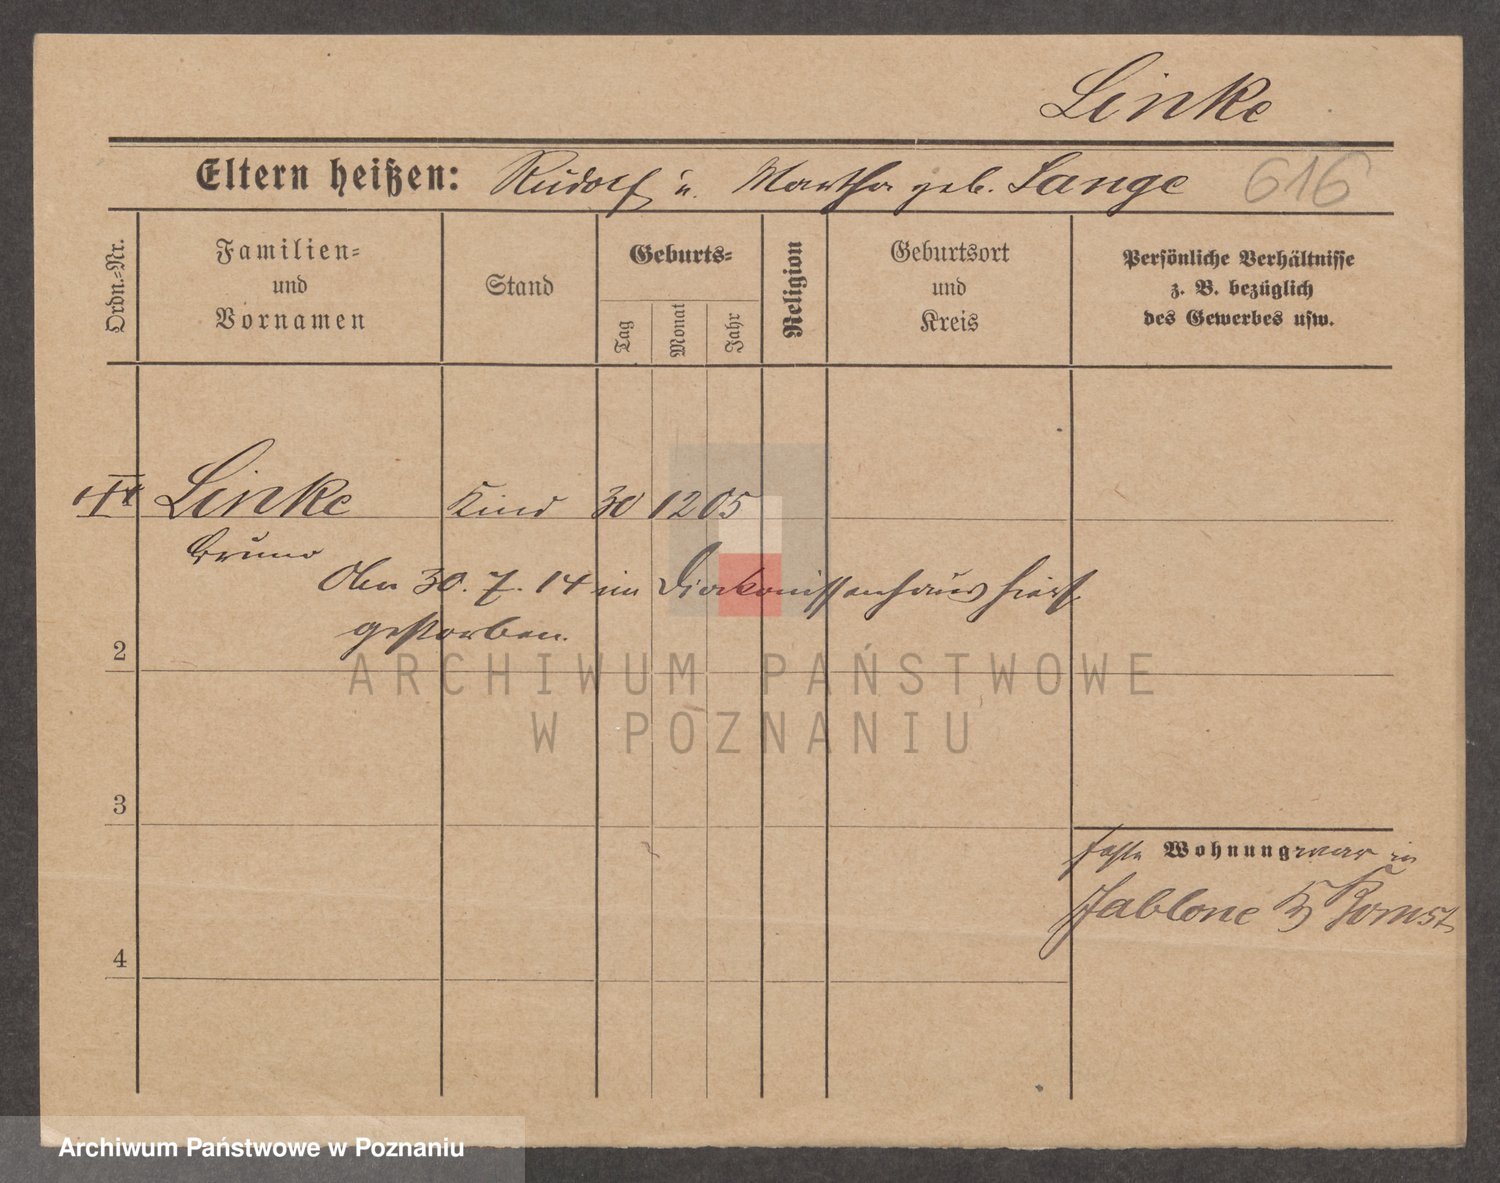 Linke
Eltern heißen: Rudolf u. Martha geb. Lange
616
Ordn.-Nr.
Familien-
und
Vornamen
Stand
Geburts-
Tag
Monat
Jahr
Religion
Geburtsort
und
Kreis
Persönliche Verhältnisse
z. B. bezüglich
des Gewerbes usw.
Linke Kind 30 12 05
Bruno
30. 7. 14 im Diakonissenhaus hierf.
gestorben.
2
ARCHIWUM PAŃSTWOWE
W POZNANIU
3
Wohnung war in
Jablone Kr Bomst
4
Archiwum Państwowe w Poznaniu